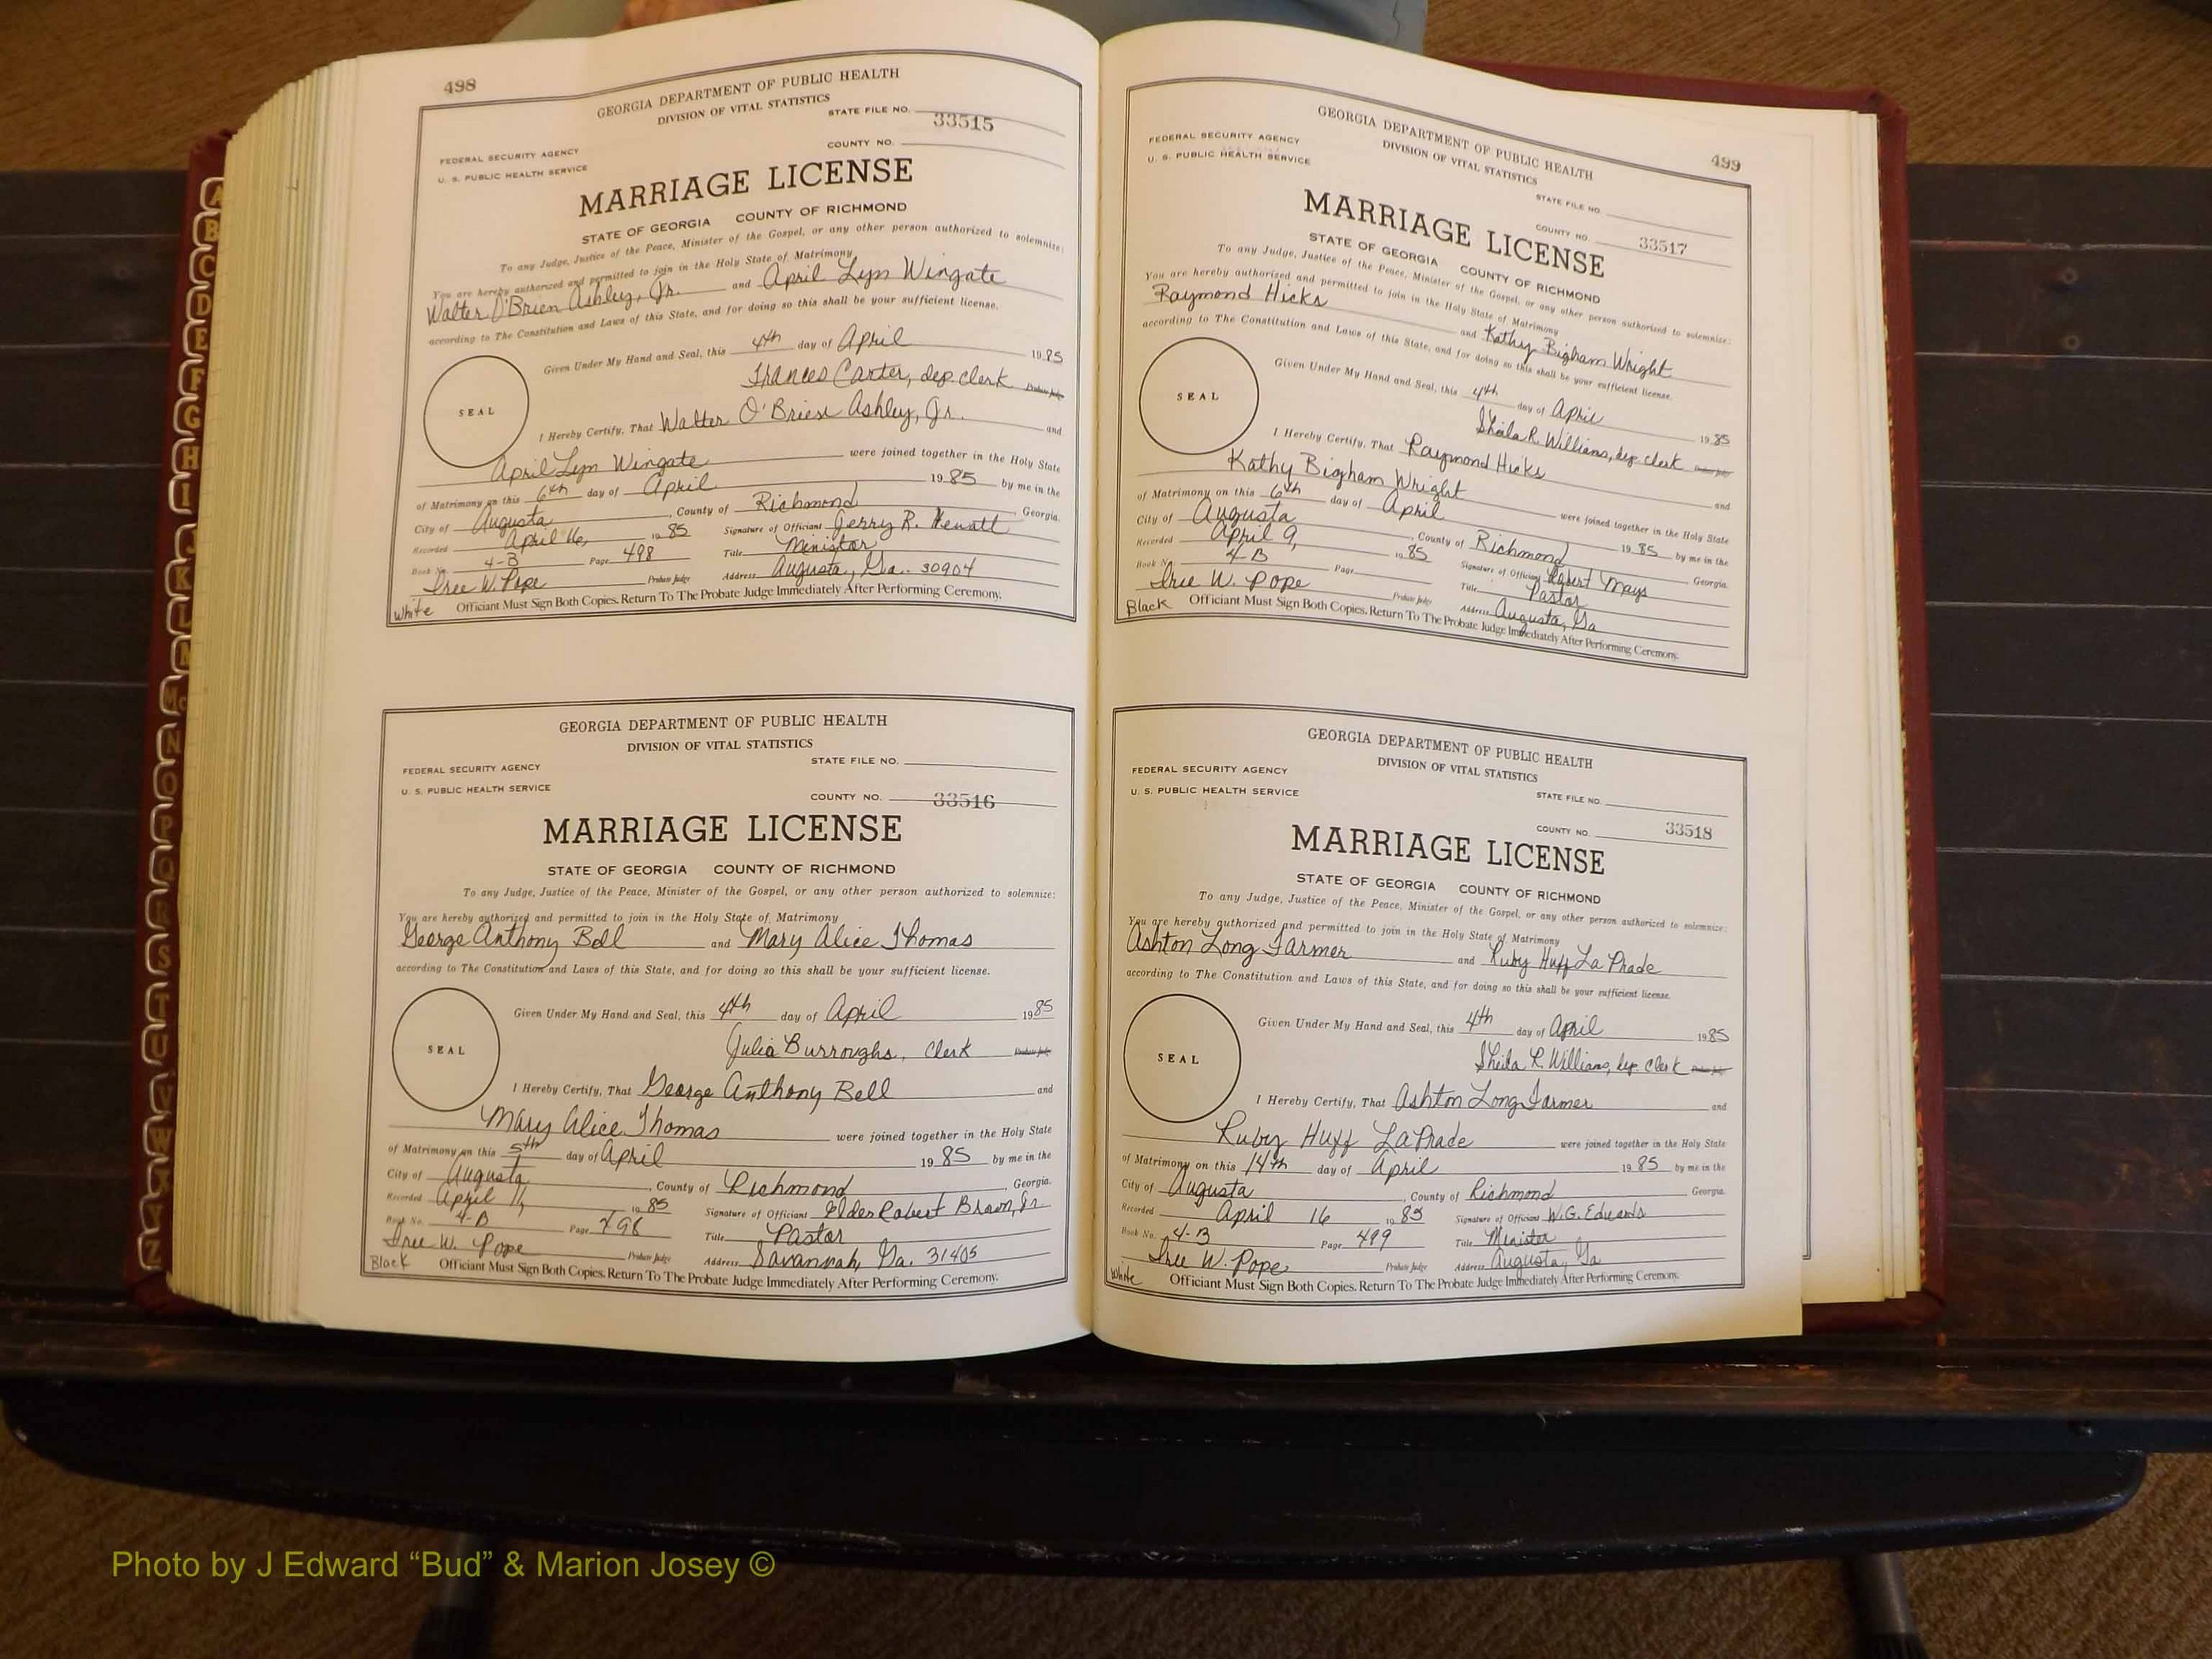 498
GEORGIA DEPARTMENT OF PUBLIC HEALTH
DIVISION OF VITAL STATISTICS
STATE FILE NO. 33515
FEDERAL SECURITY AGENCY
U. S. PUBLIC HEALTH SERVICE
COUNTY NO.
MARRIAGE LICENSE
STATE OF GEORGIA COUNTY OF RICHMOND
To any Judge, Justice of the Peace, Minister of the Gospel, or any other person authorized to solemnize:
You are hereby authorized and permitted to join in the Holy State of Matrimony
Walter O'Brien Ashley, Jr. and April Lyn Wingate
according to The Constitution and Laws of this State, and for doing so this shall be your sufficient license.
Given Under My Hand and Seal, this 4th day of April 1985
Frances Carter, dep. clerk Probate Judge
SEAL
I Hereby Certify, That Walter O'Brien Ashley, Jr. and
April Lyn Wingate were joined together in the Holy State
of Matrimony on this 6th day of April 1985 by me in the
City of Augusta, County of Richmond, Georgia.
Recorded April 16, 1985 Signature of Officiant Jerry R.
Book No. 4-B Page 498 Title Minister
W. Pope Probate Judge Address Augusta, Ga. 30904
White Officiant Must Sign Both Copies. Return To The Probate Judge Immediately After Performing Ceremony.
GEORGIA DEPARTMENT OF PUBLIC HEALTH
DIVISION OF VITAL STATISTICS
STATE FILE NO.
FEDERAL SECURITY AGENCY
U. S. PUBLIC HEALTH SERVICE
COUNTY NO. 33516
MARRIAGE LICENSE
STATE OF GEORGIA COUNTY OF RICHMOND
To any Judge, Justice of the Peace, Minister of the Gospel, or any other person authorized to solemnize:
You are hereby authorized and permitted to join in the Holy State of Matrimony
George Anthony Bell and Mary Alice Thomas
according to The Constitution and Laws of this State, and for doing so this shall be your sufficient license.
Given Under My Hand and Seal, this 4th day of April 1985
Julia Burroughs, Clerk Probate Judge
SEAL
I Hereby Certify, That George Anthony Bell and
Mary Alice Thomas were joined together in the Holy State
of Matrimony on this 5th day of April 1985 by me in the
City of Augusta, County of Richmond, Georgia.
Recorded April 11, 1985 Signature of Officiant Elder Robert Brown, Jr.
Book No. 4-B Page 498 Title Pastor
W. Pope Probate Judge Address Savannah, Ga. 31405
Black Officiant Must Sign Both Copies. Return To The Probate Judge Immediately After Performing Ceremony.
499
GEORGIA DEPARTMENT OF PUBLIC HEALTH
DIVISION OF VITAL STATISTICS
FEDERAL SECURITY AGENCY
U. S. PUBLIC HEALTH SERVICE
STATE FILE NO.
COUNTY NO. 33517
MARRIAGE LICENSE
STATE OF GEORGIA COUNTY OF RICHMOND
To any Judge, Justice of the Peace, Minister of the Gospel, or any other person authorized to solemnize:
You are hereby authorized and permitted to join in the Holy State of Matrimony
Raymond Hicks and Kathy Bigham Wright
according to The Constitution and Laws of this State, and for doing so this shall be your sufficient license.
Given Under My Hand and Seal, this 4th day of April 1985
Sheila R. Williams, dep. clerk Probate Judge
SEAL
I Hereby Certify, That Raymond Hicks and
Kathy Bigham Wright were joined together in the Holy State
of Matrimony on this 6th day of April 1985 by me in the
City of Augusta, County of Richmond, Georgia.
Recorded April 9, 1985 Signature of Officiant Robert Mays
Book No. 4-B Page Title Pastor
W. Pope Probate Judge Address Augusta, Ga
Black Officiant Must Sign Both Copies. Return To The Probate Judge Immediately After Performing Ceremony.
GEORGIA DEPARTMENT OF PUBLIC HEALTH
DIVISION OF VITAL STATISTICS
FEDERAL SECURITY AGENCY
U. S. PUBLIC HEALTH SERVICE
STATE FILE NO.
COUNTY NO. 33518
MARRIAGE LICENSE
STATE OF GEORGIA COUNTY OF RICHMOND
To any Judge, Justice of the Peace, Minister of the Gospel, or any other person authorized to solemnize:
You are hereby authorized and permitted to join in the Holy State of Matrimony
Ashton Long Farmer and Ruby Huff La Prade
according to The Constitution and Laws of this State, and for doing so this shall be your sufficient license.
Given Under My Hand and Seal, this 4th day of April 1985
Sheila R. Williams, dep. clerk Probate Judge
SEAL
I Hereby Certify, That Ashton Long Farmer and
Ruby Huff LaPrade were joined together in the Holy State
of Matrimony on this 14th day of April 1985 by me in the
City of Augusta, County of Richmond Georgia.
Recorded April 16 1985 Signature of Officiant W.G. Edwards
Book No. 4-B Page 499 Title Minister
W. Pope Probate Judge Address Augusta, Ga
White Officiant Must Sign Both Copies. Return To The Probate Judge Immediately After Performing Ceremony.
Photo by J Edward “Bud” & Marion Josey ©